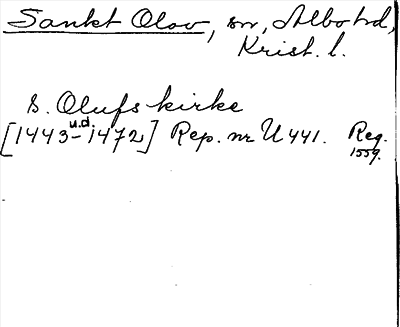 Sankt Olov, sn, Albo hd,
Krist. l.
S. Olufs kirke
[1443 u.d. -1472] Rep. nr U 441. Reg.
1559.